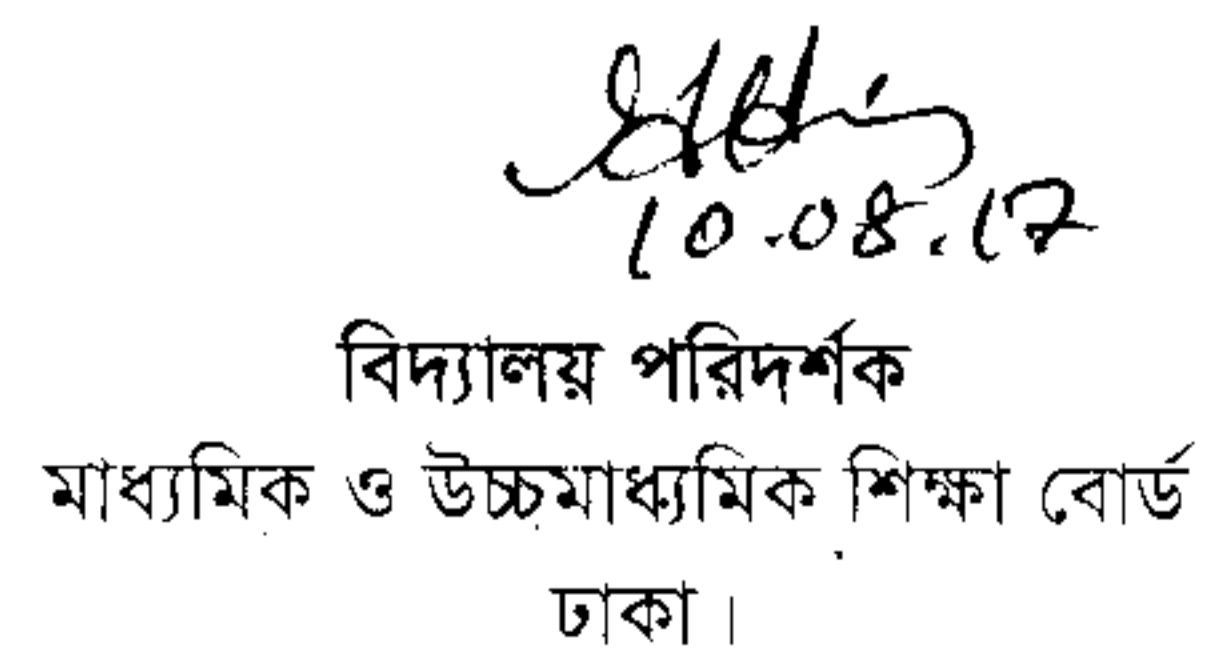 10.08.17
বিদ্যালয় পরিদর্শক
মাধ্যমিক ও উচ্চমাধ্যমিক শিক্ষা বোর্ড
ঢাকা।